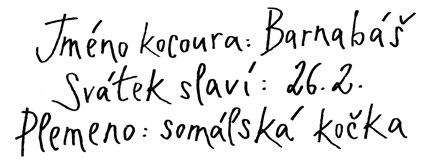 Jméno kocoura: Barnabáš
Svátek slaví: 26.2.
Plemeno: somálská kočka